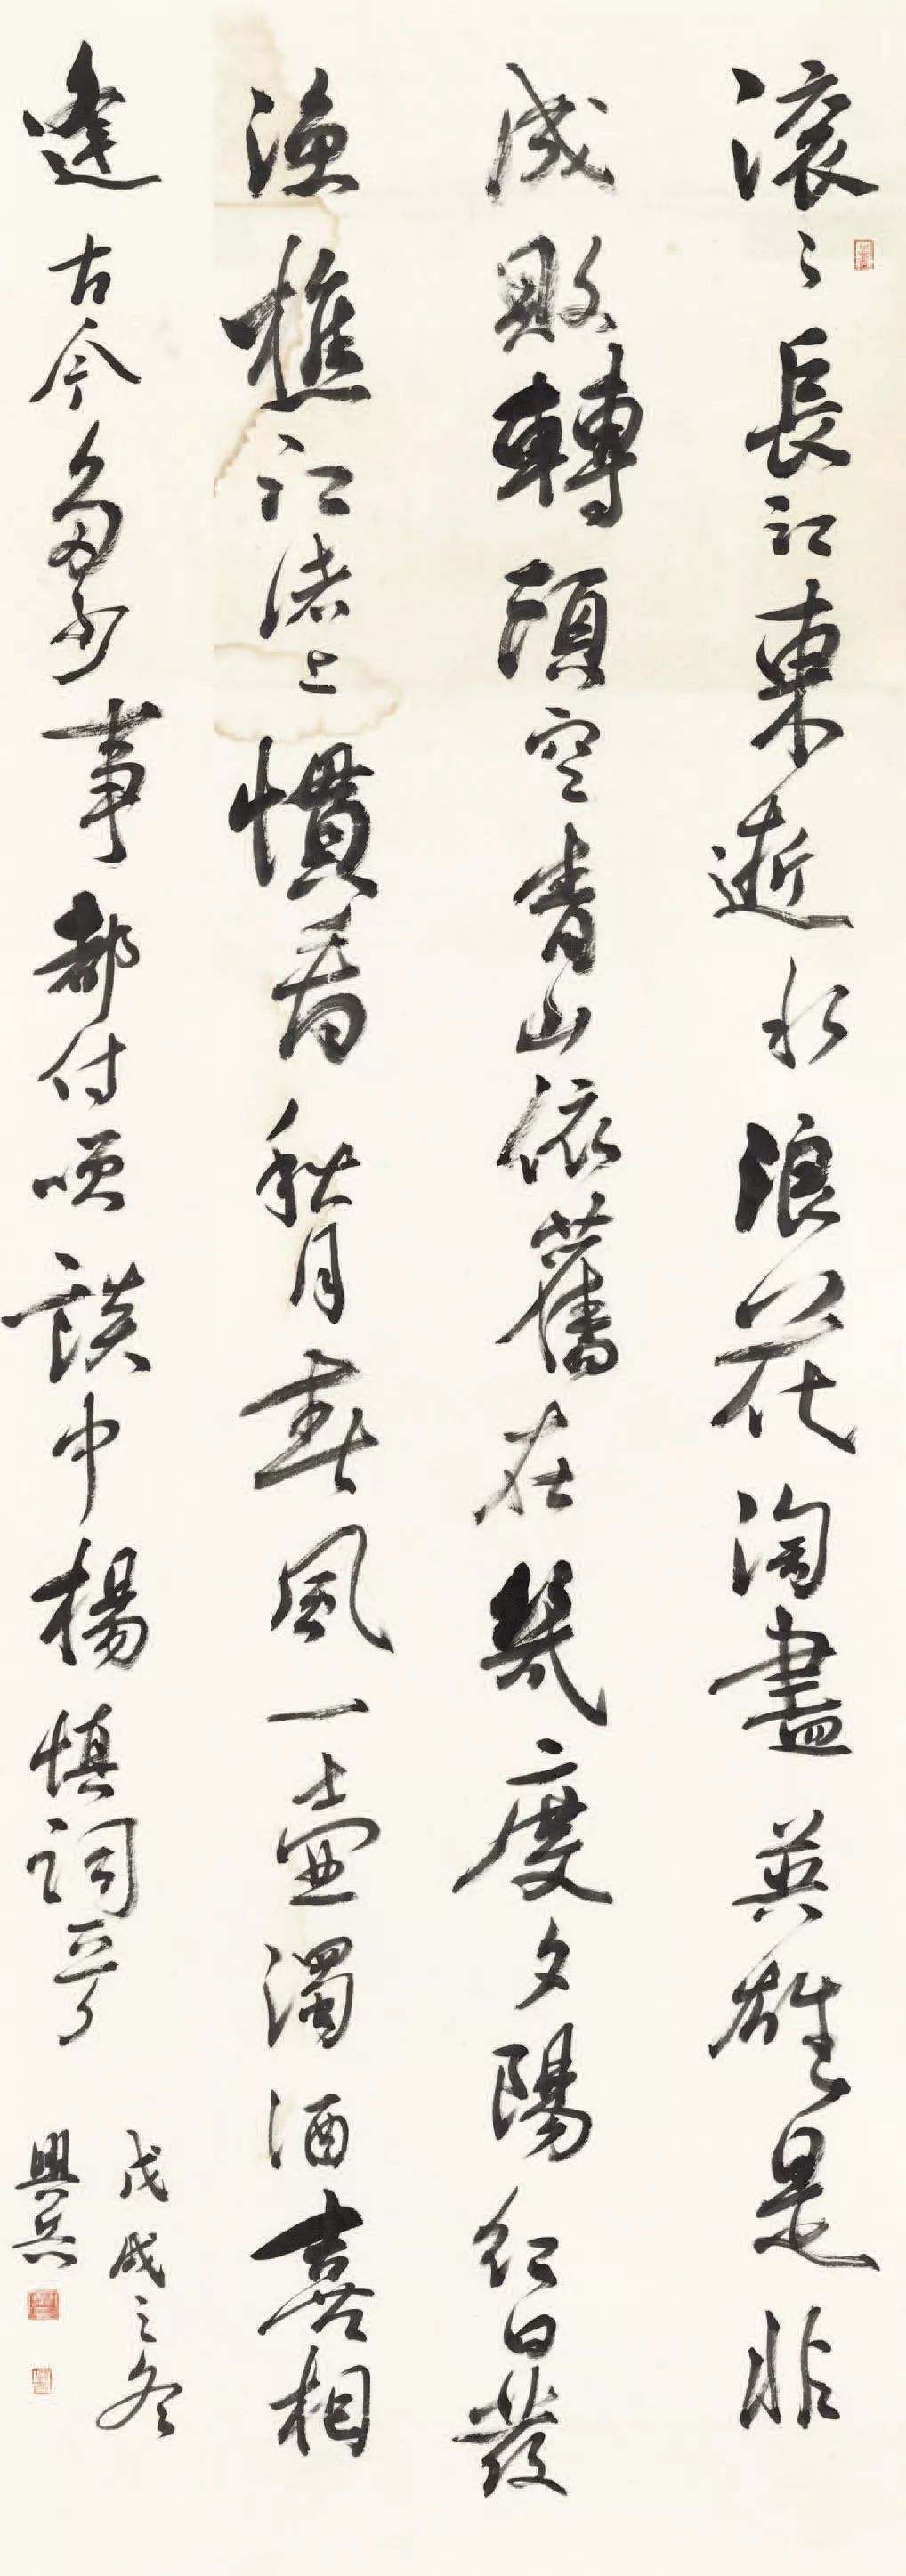 滚々長江東逝水浪花淘盡英雄是非
成敗轉頭空青山依舊在幾度夕陽紅白髮
漁樵江渚上慣看秋月春風一壺濁酒喜相
逢古今多少事都付笑談中楊慎詞一首
戊戌之冬
興兵